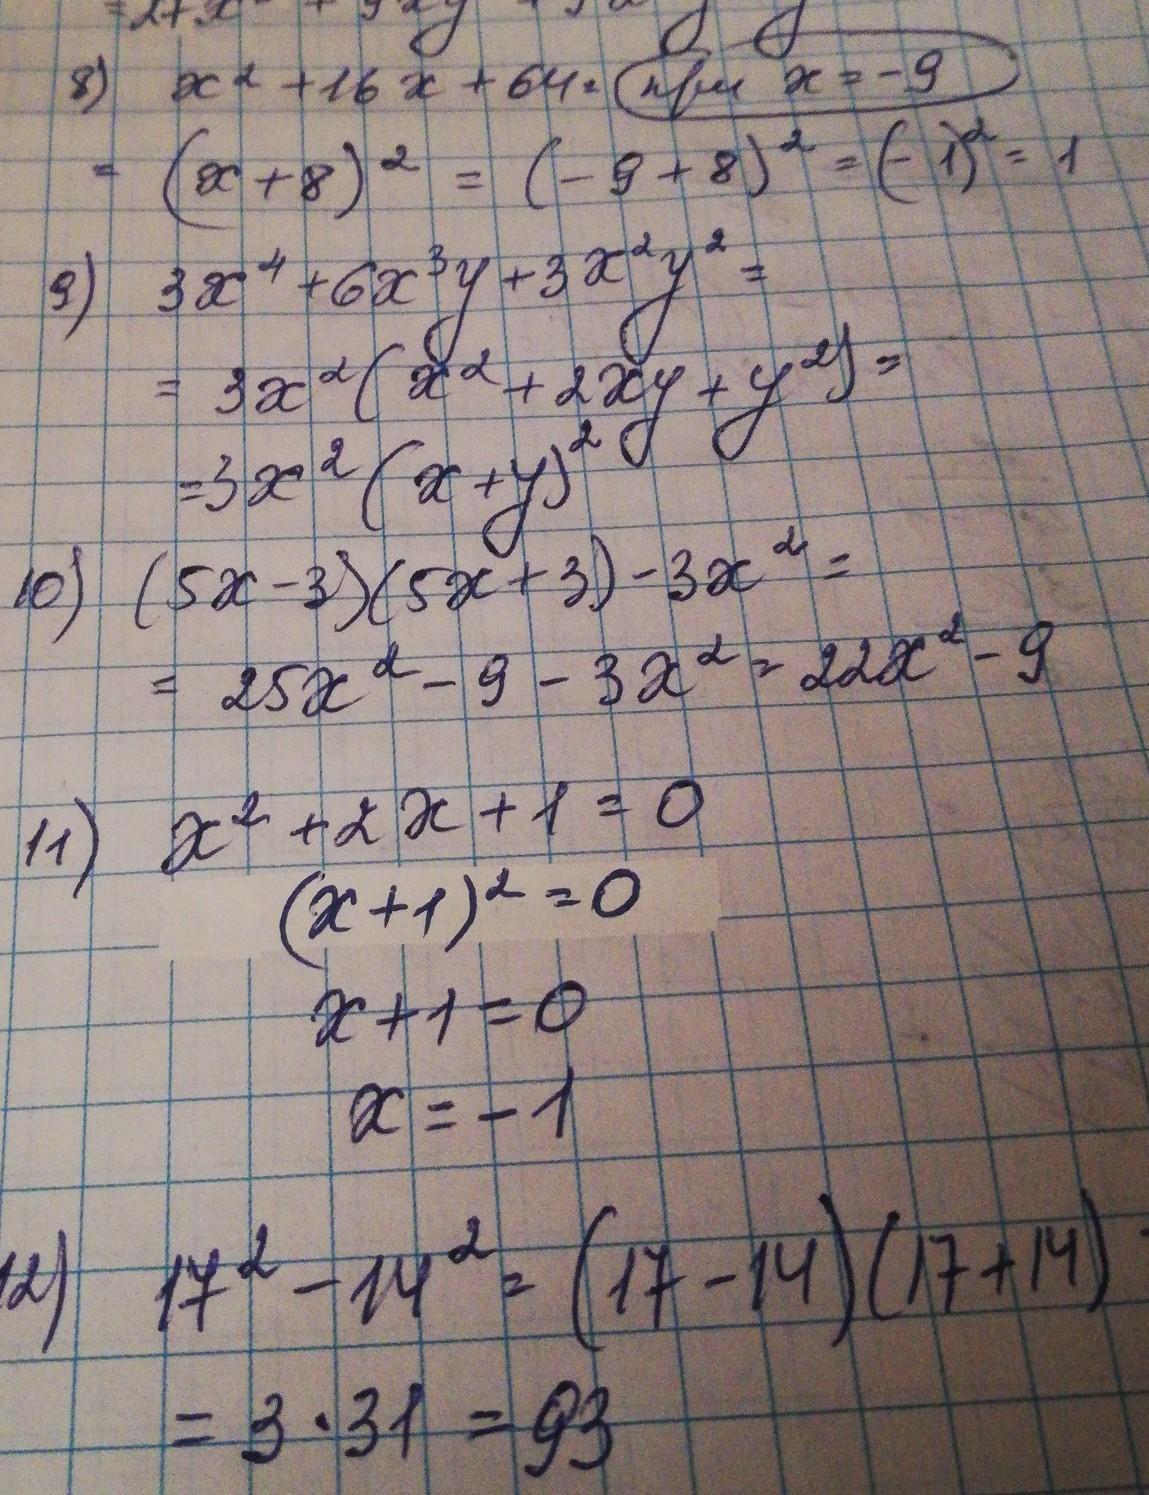 8) x² + 16x + 64 = при x = -9
= (x + 8)² = (-9 + 8)² = (-1)² = 1
9) 3x⁴ + 6x³y + 3x²y² =
= 3x²(x² + 2xy + y²) =
= 3x²(x + y)²
10) (5x - 3)(5x + 3) - 3x² =
= 25x² - 9 - 3x² = 22x² - 9
11) x² + 2x + 1 = 0
(x + 1)² = 0
x + 1 = 0
x = -1
12) 17² - 14² = (17 - 14)(17 + 14)
= 3 · 31 = 93